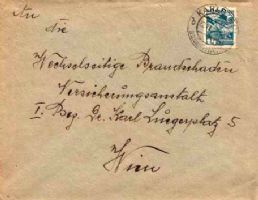 An
die
Wechselseitige Brandschaden
Versicherungsanstalt
I. Bez. Dr. Karl Luegerplatz 5
Wien